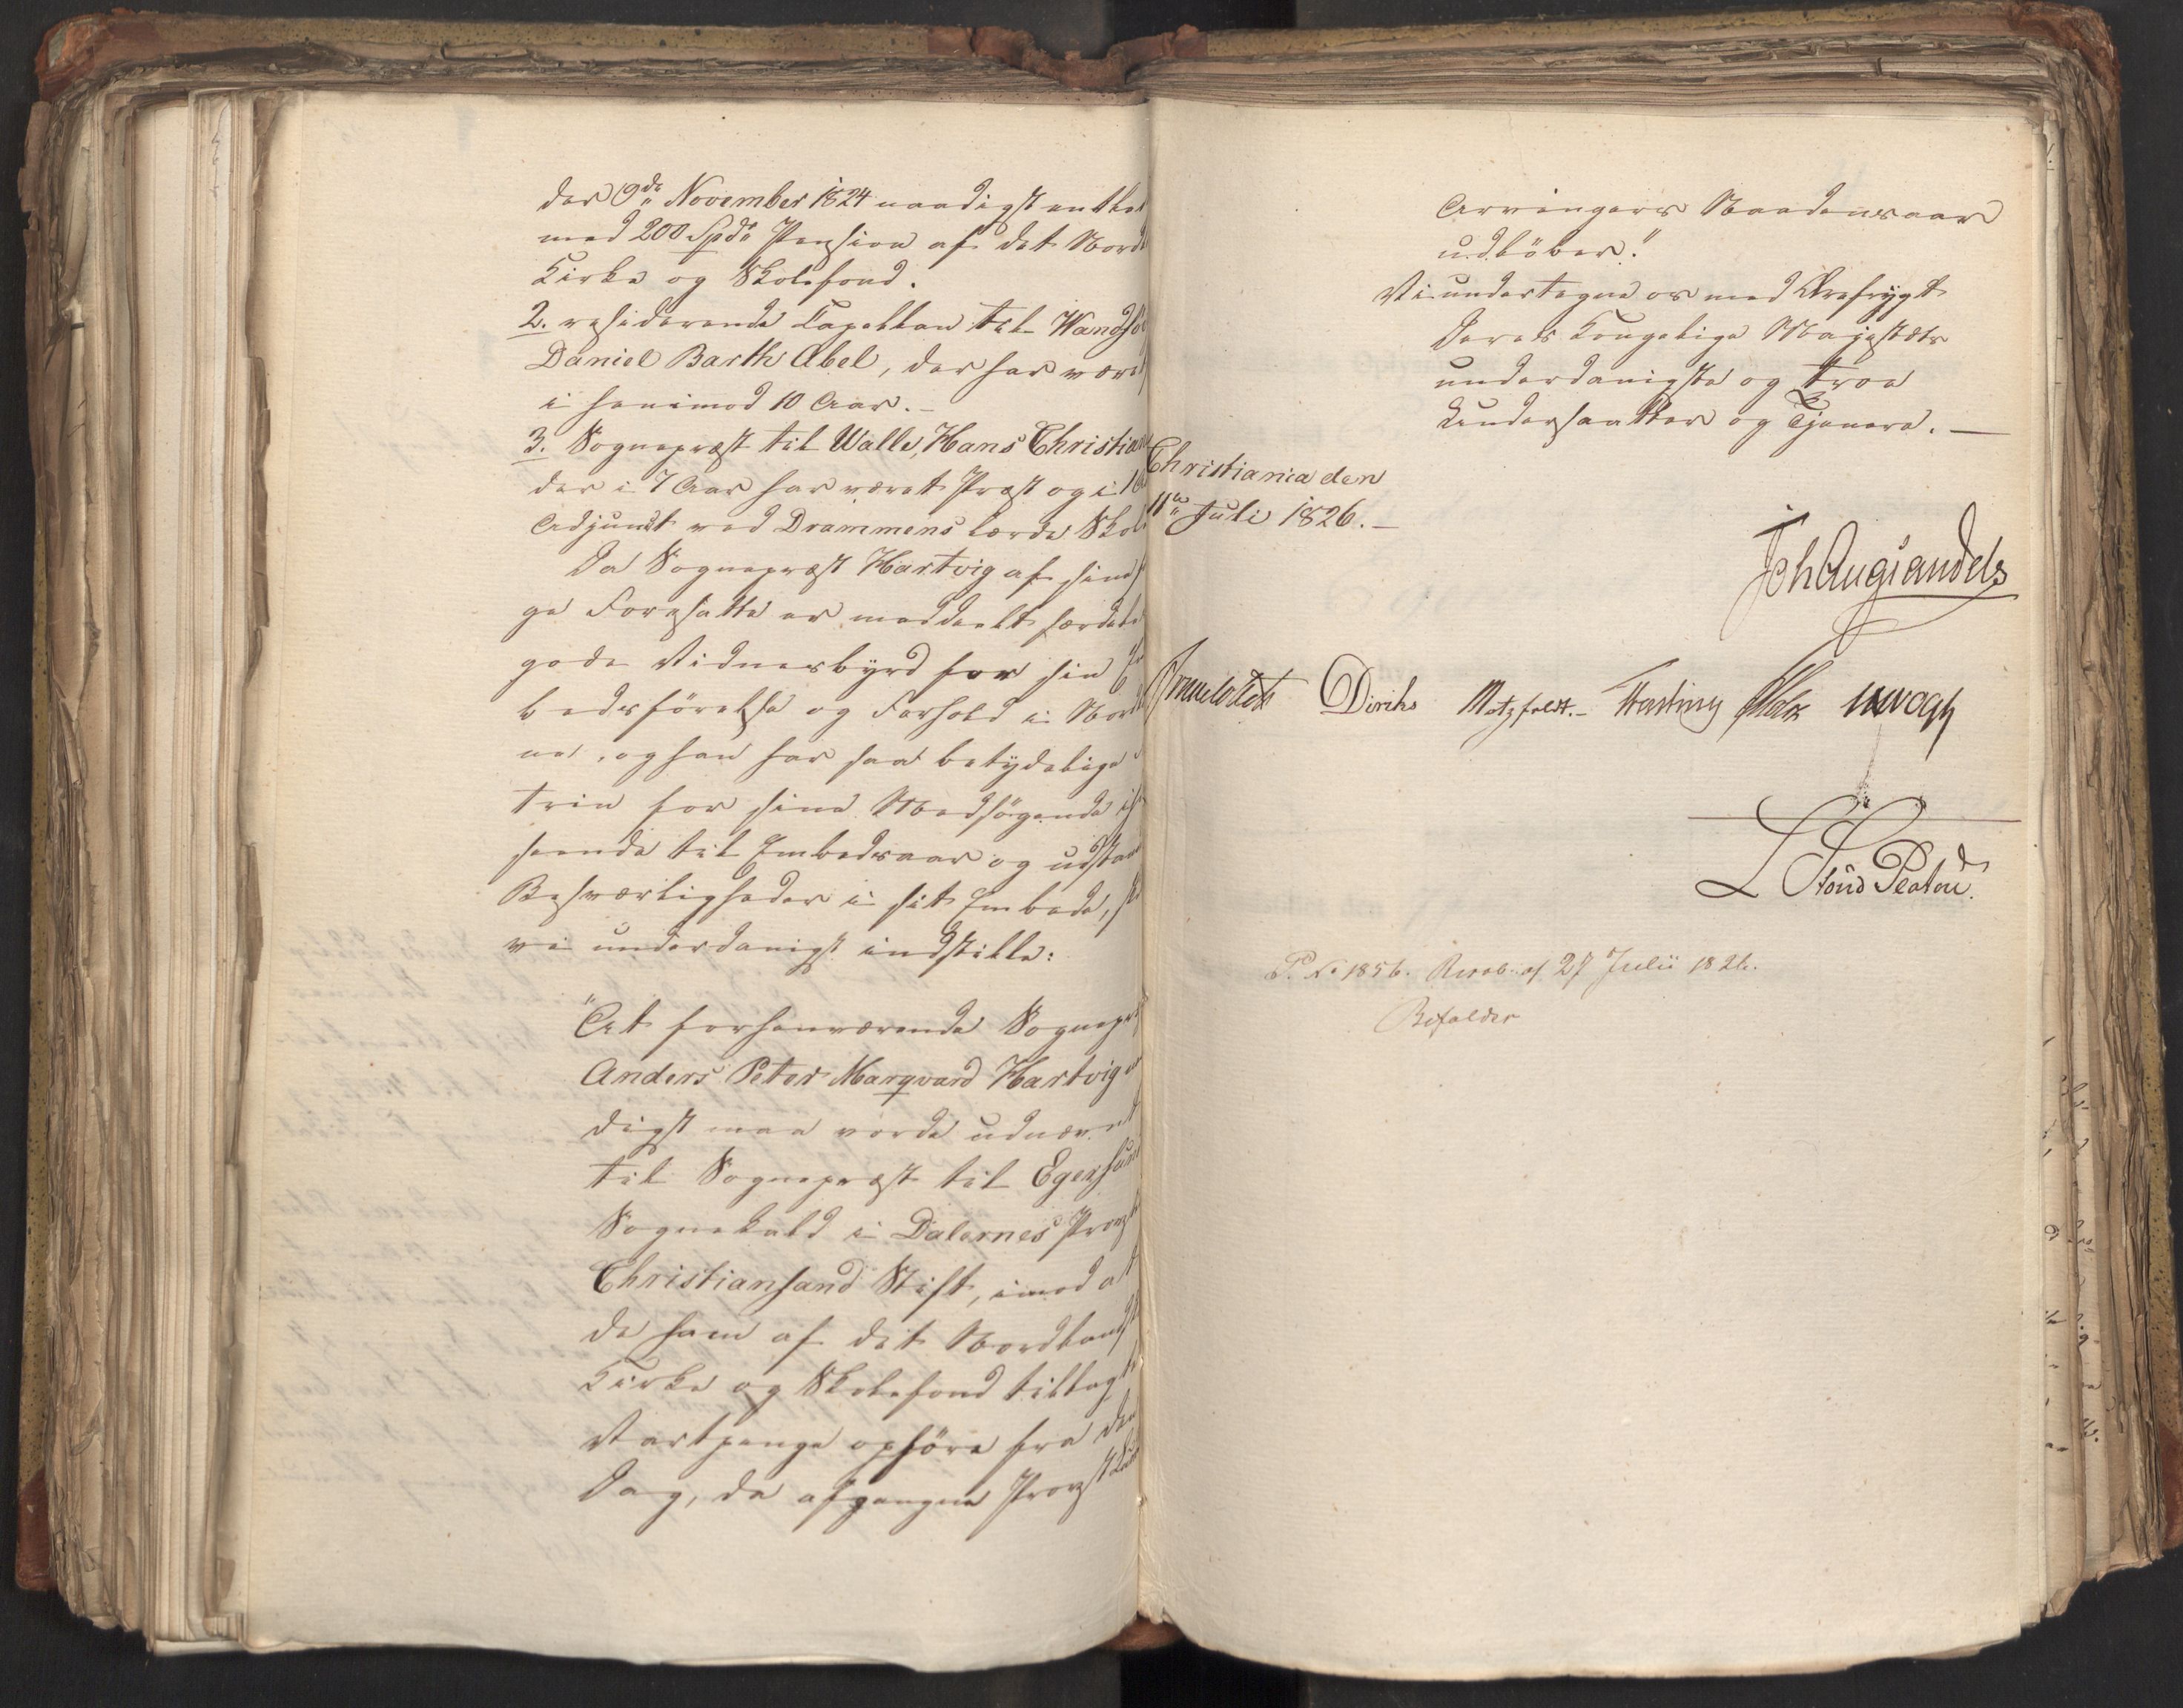 der 9de November 1824 naadigst entled
med 200 Spd. Pension af det Nordl
Kirke og Skolefond.
2. residerende Capellan til Wandsö
Daniel Barth Abel, der har været
i henimod 10 Aar. –
3. Sognepræst til Walle, Hans Christian
der i 7 Aar har været Præst og i 16
Adjunct ved Drammens lærde Skol
Da Sognepræst Hartvig af sine f
ge Foresatte er meddeelt særdele
gode Vidnesbyrd for sin Em
bedsförelse og Forhold i Nordl
ne, og han har saa betydelige
trin for sine Medsögende i H
seende til Embedsaar og udstan
Besværligheder i sit Embede, sk
vi underdanigst indstille:
"At forhenværende Sognepr
Anders Peter Marqvard Hartvig n
digst maa vorde udnævnt
til Sognepræst til Egersund
Sognekald i Dalernes Provst
Christiansand Stift, imod at
de ham af det Nordlandsk
Kirke og Skolefond tillagte
Vartpenge ophöre fra den
Dag, da afgangne Provst
Arvingers Naadensaar
udlöber."
Vi undertegne os med Ærefrygt
Deres Kongelige Majestæts
underdanigste og troe
Undersaatter og Tjenere. —
Christiania den
11te Juli 1826. –
Joh Aug Sandels
Diriks Motzfeldt. – Fasting
L Stoud Platou
P. No 1856. Resol. af 27 Julii 1826.
Bifaldes